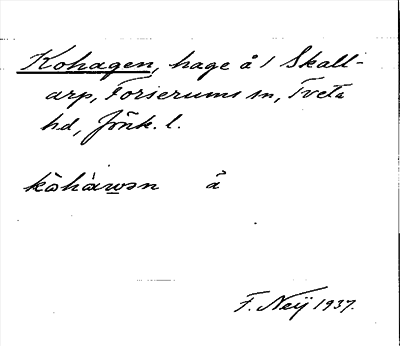 Kohagen, hage å 1 Skall-
arp, Forserums sn, Tveta
hd, Jönk. l.
kòhàwən å
F. Neij 1937.